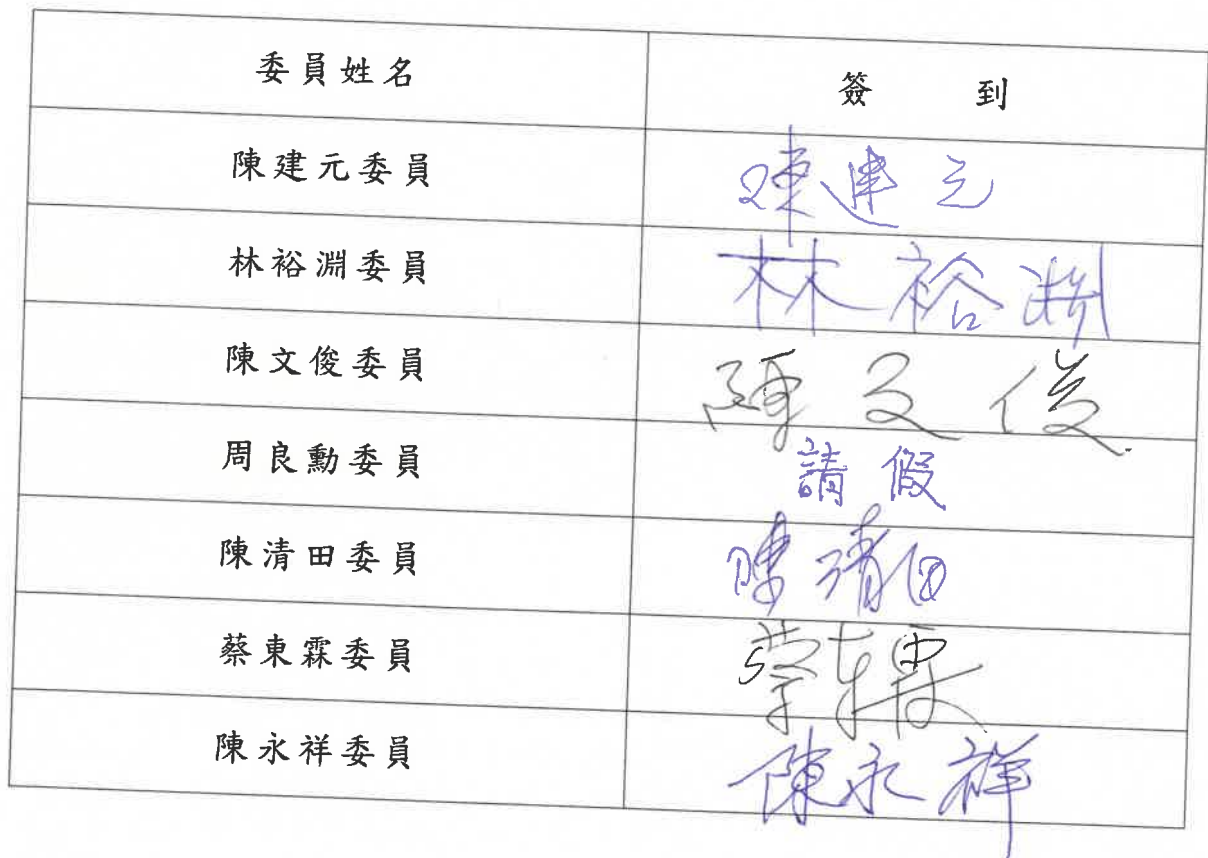 委員姓名 簽到
陳建元委員 陳建元
林裕淵委員 林裕淵
陳文俊委員 陳文俊
周良勳委員 請假
陳清田委員 陳清田
蔡東霖委員 蔡東霖
陳永祥委員 陳永祥